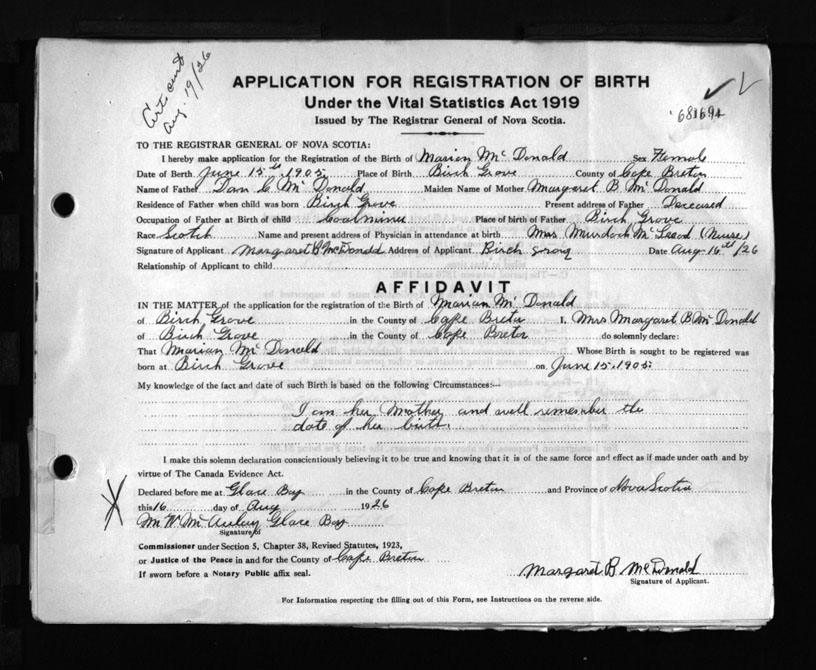 Cert sent
Aug. 19/26
APPLICATION FOR REGISTRATION OF BIRTH
Under the Vital Statistics Act 1919
Issued by The Registrar General of Nova Scotia.
TO THE REGISTRAR GENERAL OF NOVA SCOTIA:
I hereby make application for the Registration of the Birth of Marion Mc Donald Sex Female
Date of Birth June 15th 1905 Place of Birth Birch Grove County of Cape Breton
Name of Father Dan C. Mc Donald Maiden Name of Mother Margaret B Mc Donald
Residence of Father when child was born Birch Grove Present address of Father Deceased
Occupation of Father at Birth of child Coalminer Place of birth of Father Birch Grove
Race Scotch Name and present address of Physician in attendance at birth Mrs Murdock Mc Leod (Nurse)
Signature of Applicant Margaret B McDonald Address of Applicant Birch Grov Date Aug 16th/26
Relationship of Applicant to child
AFFIDAVIT
IN THE MATTER of the application for the registration of the Birth of Marian Mc Donald
of Birch Grove in the County of Cape Breton I, Mrs Margaret B Mc Donald
of Birch Grove in the County of Cape Breton do solemnly declare:
That Marian Mc Donald Whose Birth is sought to be registered was
born at Birch Grove on June 15. 1905.
My knowledge of the fact and date of such Birth is based on the following Circumstances:—
I am her Mother and well remember the
date of her birth.
I make this solemn declaration conscientiously believing it to be true and knowing that it is of the same force and effect as if made under oath and by
virtue of The Canada Evidence Act.
Declared before me at Glace Bay in the County of Cape Breton and Province of Nova Scotia
this 16 day of Aug 1926
Mc Aulay Glace Bay
Signature of
Commissioner under Section 5, Chapter 38, Revised Statutes, 1923,
or Justice of the Peace in and for the County of Cape Breton
If sworn before a Notary Public affix seal.
Margaret B McDonald
Signature of Applicant.
For Information respecting the filling out of this Form, see Instructions on the reverse side.